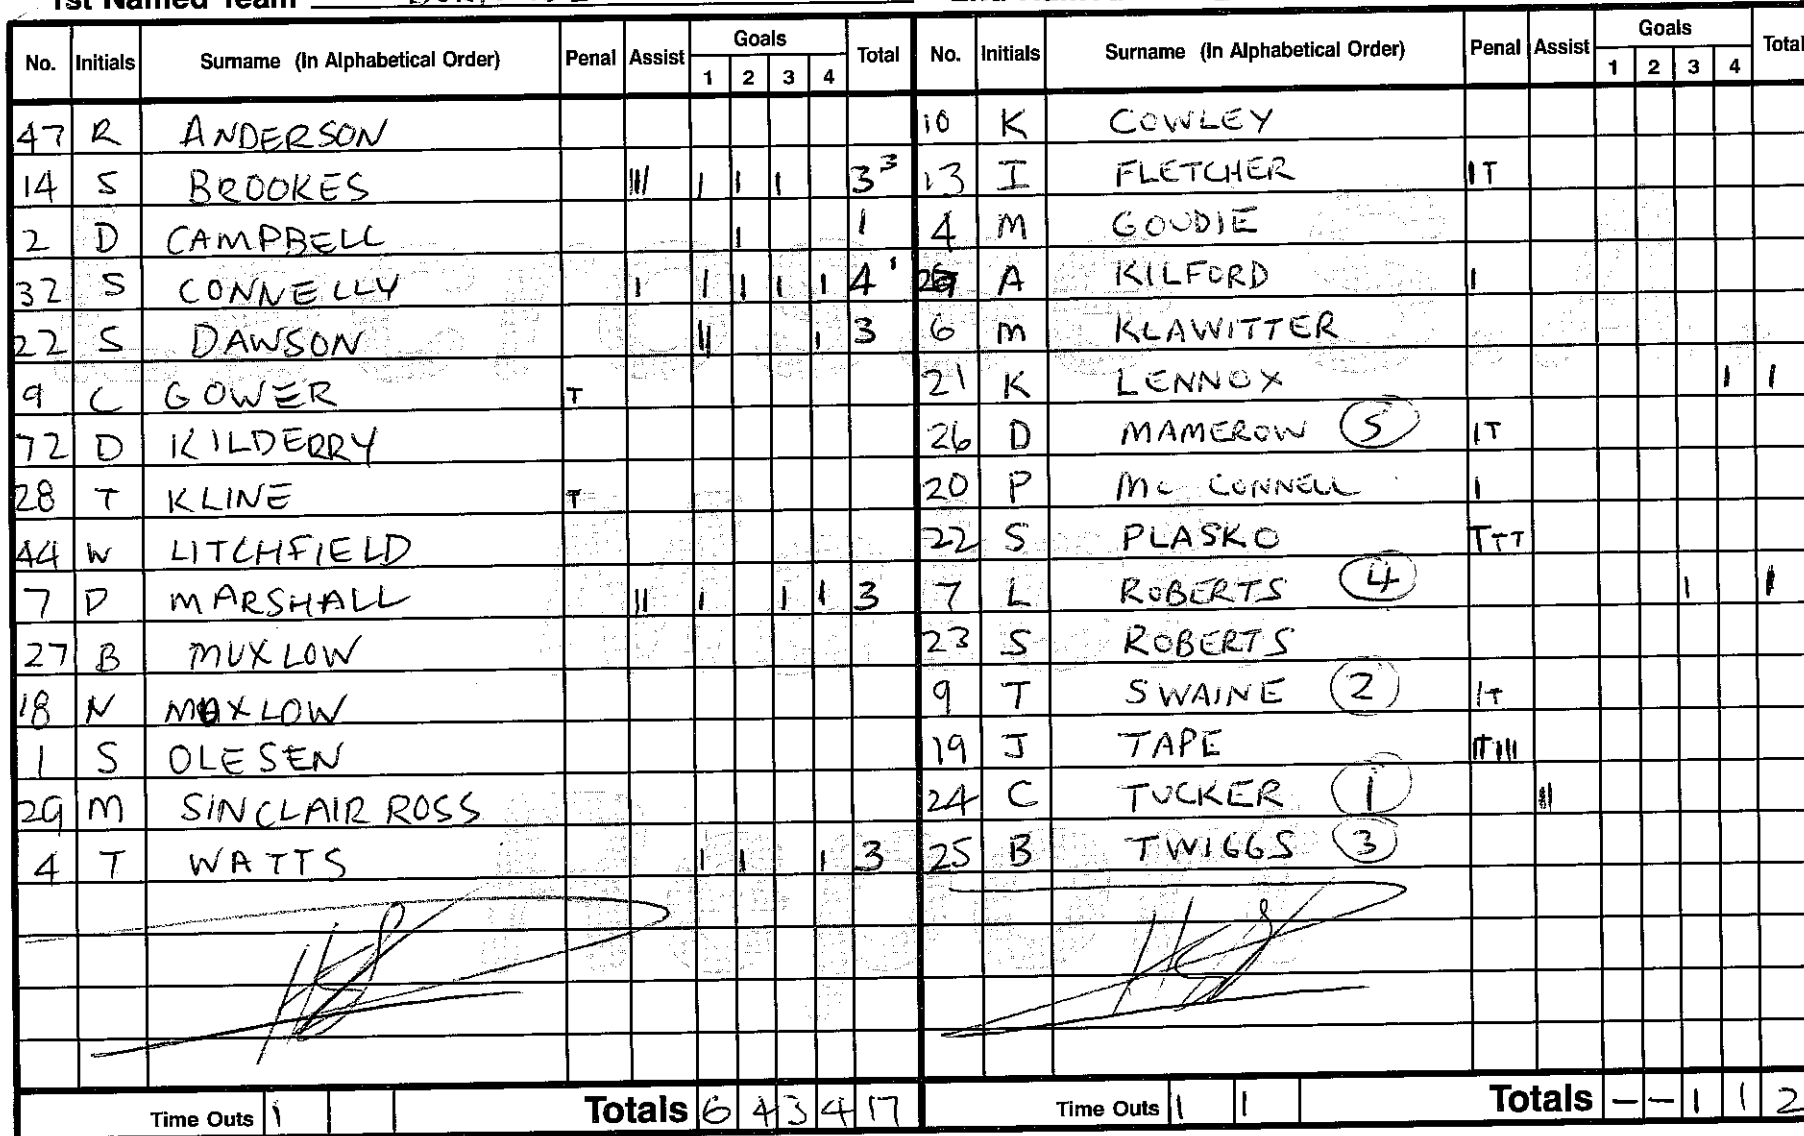 1st Named Team
No. Initials Surname (In Alphabetical Order) Penal Assist Goals 1 2 3 4 Total
47 R ANDERSON
14 S BROOKES III I I I 3 3
2 D CAMPBELL I 1
32 S CONNELLY I I I I I 4 1
22 S DAWSON II I 3
9 C GOWER T
72 D KILDERRY
28 T KLINE T
44 W LITCHFIELD
7 D MARSHALL II I I I 3
27 B MUXLOW
18 N MUXLOW
1 S OLESEN
29 M SINCLAIR ROSS
4 T WATTS I I I 3
Time Outs 1 Totals 6 4 3 4 17
No. Initials Surname (In Alphabetical Order) Penal Assist Goals 1 2 3 4 Total
10 K COWLEY
13 I FLETCHER IT
4 M GOUDIE
A KILFORD I
6 M KLAWITTER
21 K LENNOX I 1
26 D MAMEROW 5 IT
20 P Mc CONNELL I
22 S PLASKO TTT
7 L ROBERTS 4 I 1
23 S ROBERTS
9 T SWAINE 2 IT
19 J TAPE ITIII
24 C TUCKER 1 II
25 B TWIGGS 3
Time Outs 1 1 Totals - - 1 1 2